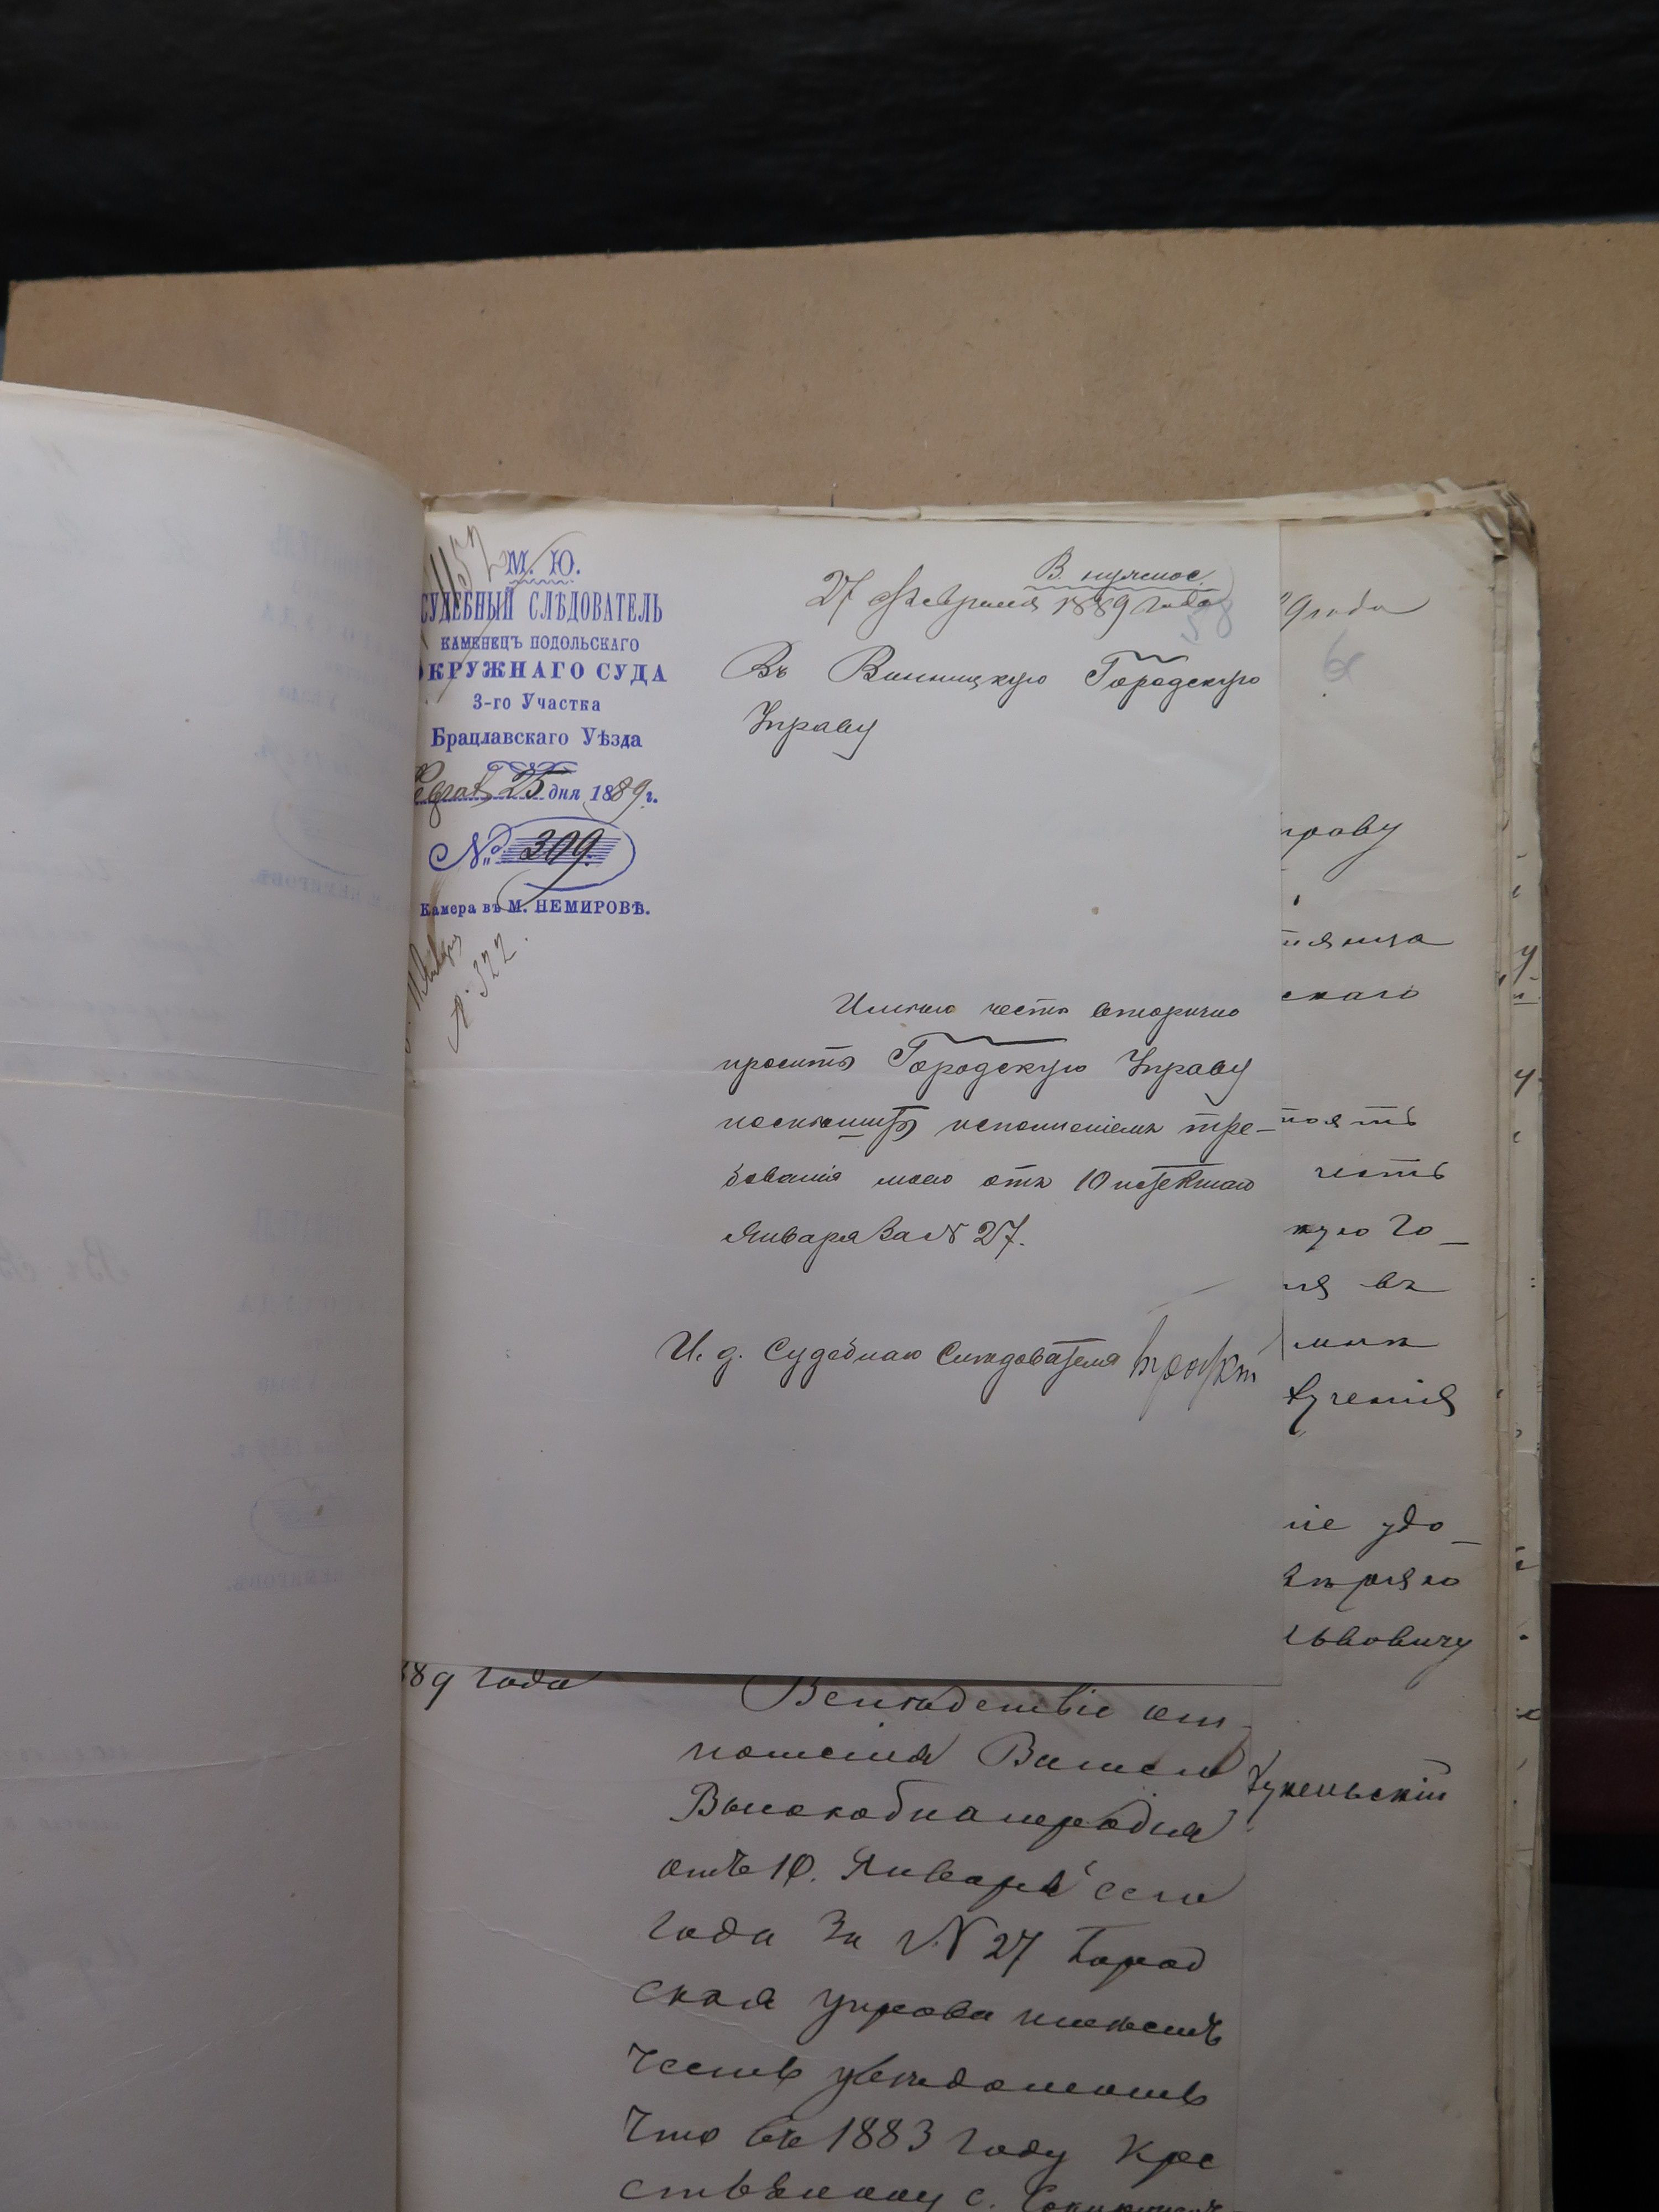 1152
М. Ю.
СУДЕБНЫЙ СЛѢДОВАТЕЛЬ
КАМЕНЕЦЪ ПОДОЛЬСКАГО
ОКРУЖНАГО СУДА
3-го Участка
Брацлавскаго Уѣзда
25 дня 1889 г.
№ 309.
Камера въ М. НЕМИРОВѢ.
№ 322.
В. нужное.
27 февраля 1889 года
58
Въ Винницкую Городскую
Управу
Имѣю честь вторично
просить Городскую Управу
поспѣшить исполненіемъ тре-
бованія моего отъ 10 истекшаго
Января за № 27.
И. д. Судебнаго Слѣдователя
9 года
праву
скаго
честь
кую Го-
ія въ
ученія
іе удо-
ьвовичу
889 года
Вслѣдствіе от-
ношенія Вашего
Высокоблагородія
отъ 10. Января сего
года за № 27 Город
ская управа имѣетъ
честь увѣдомить
что въ 1883 году кре
стьянину с.